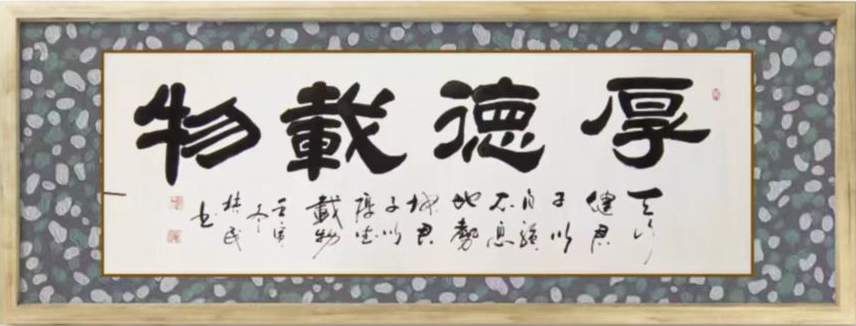 厚德載物
天行
健君
子以
自強
不息
地勢
坤君
子以
厚德
載物
壬寅
冬
民
书